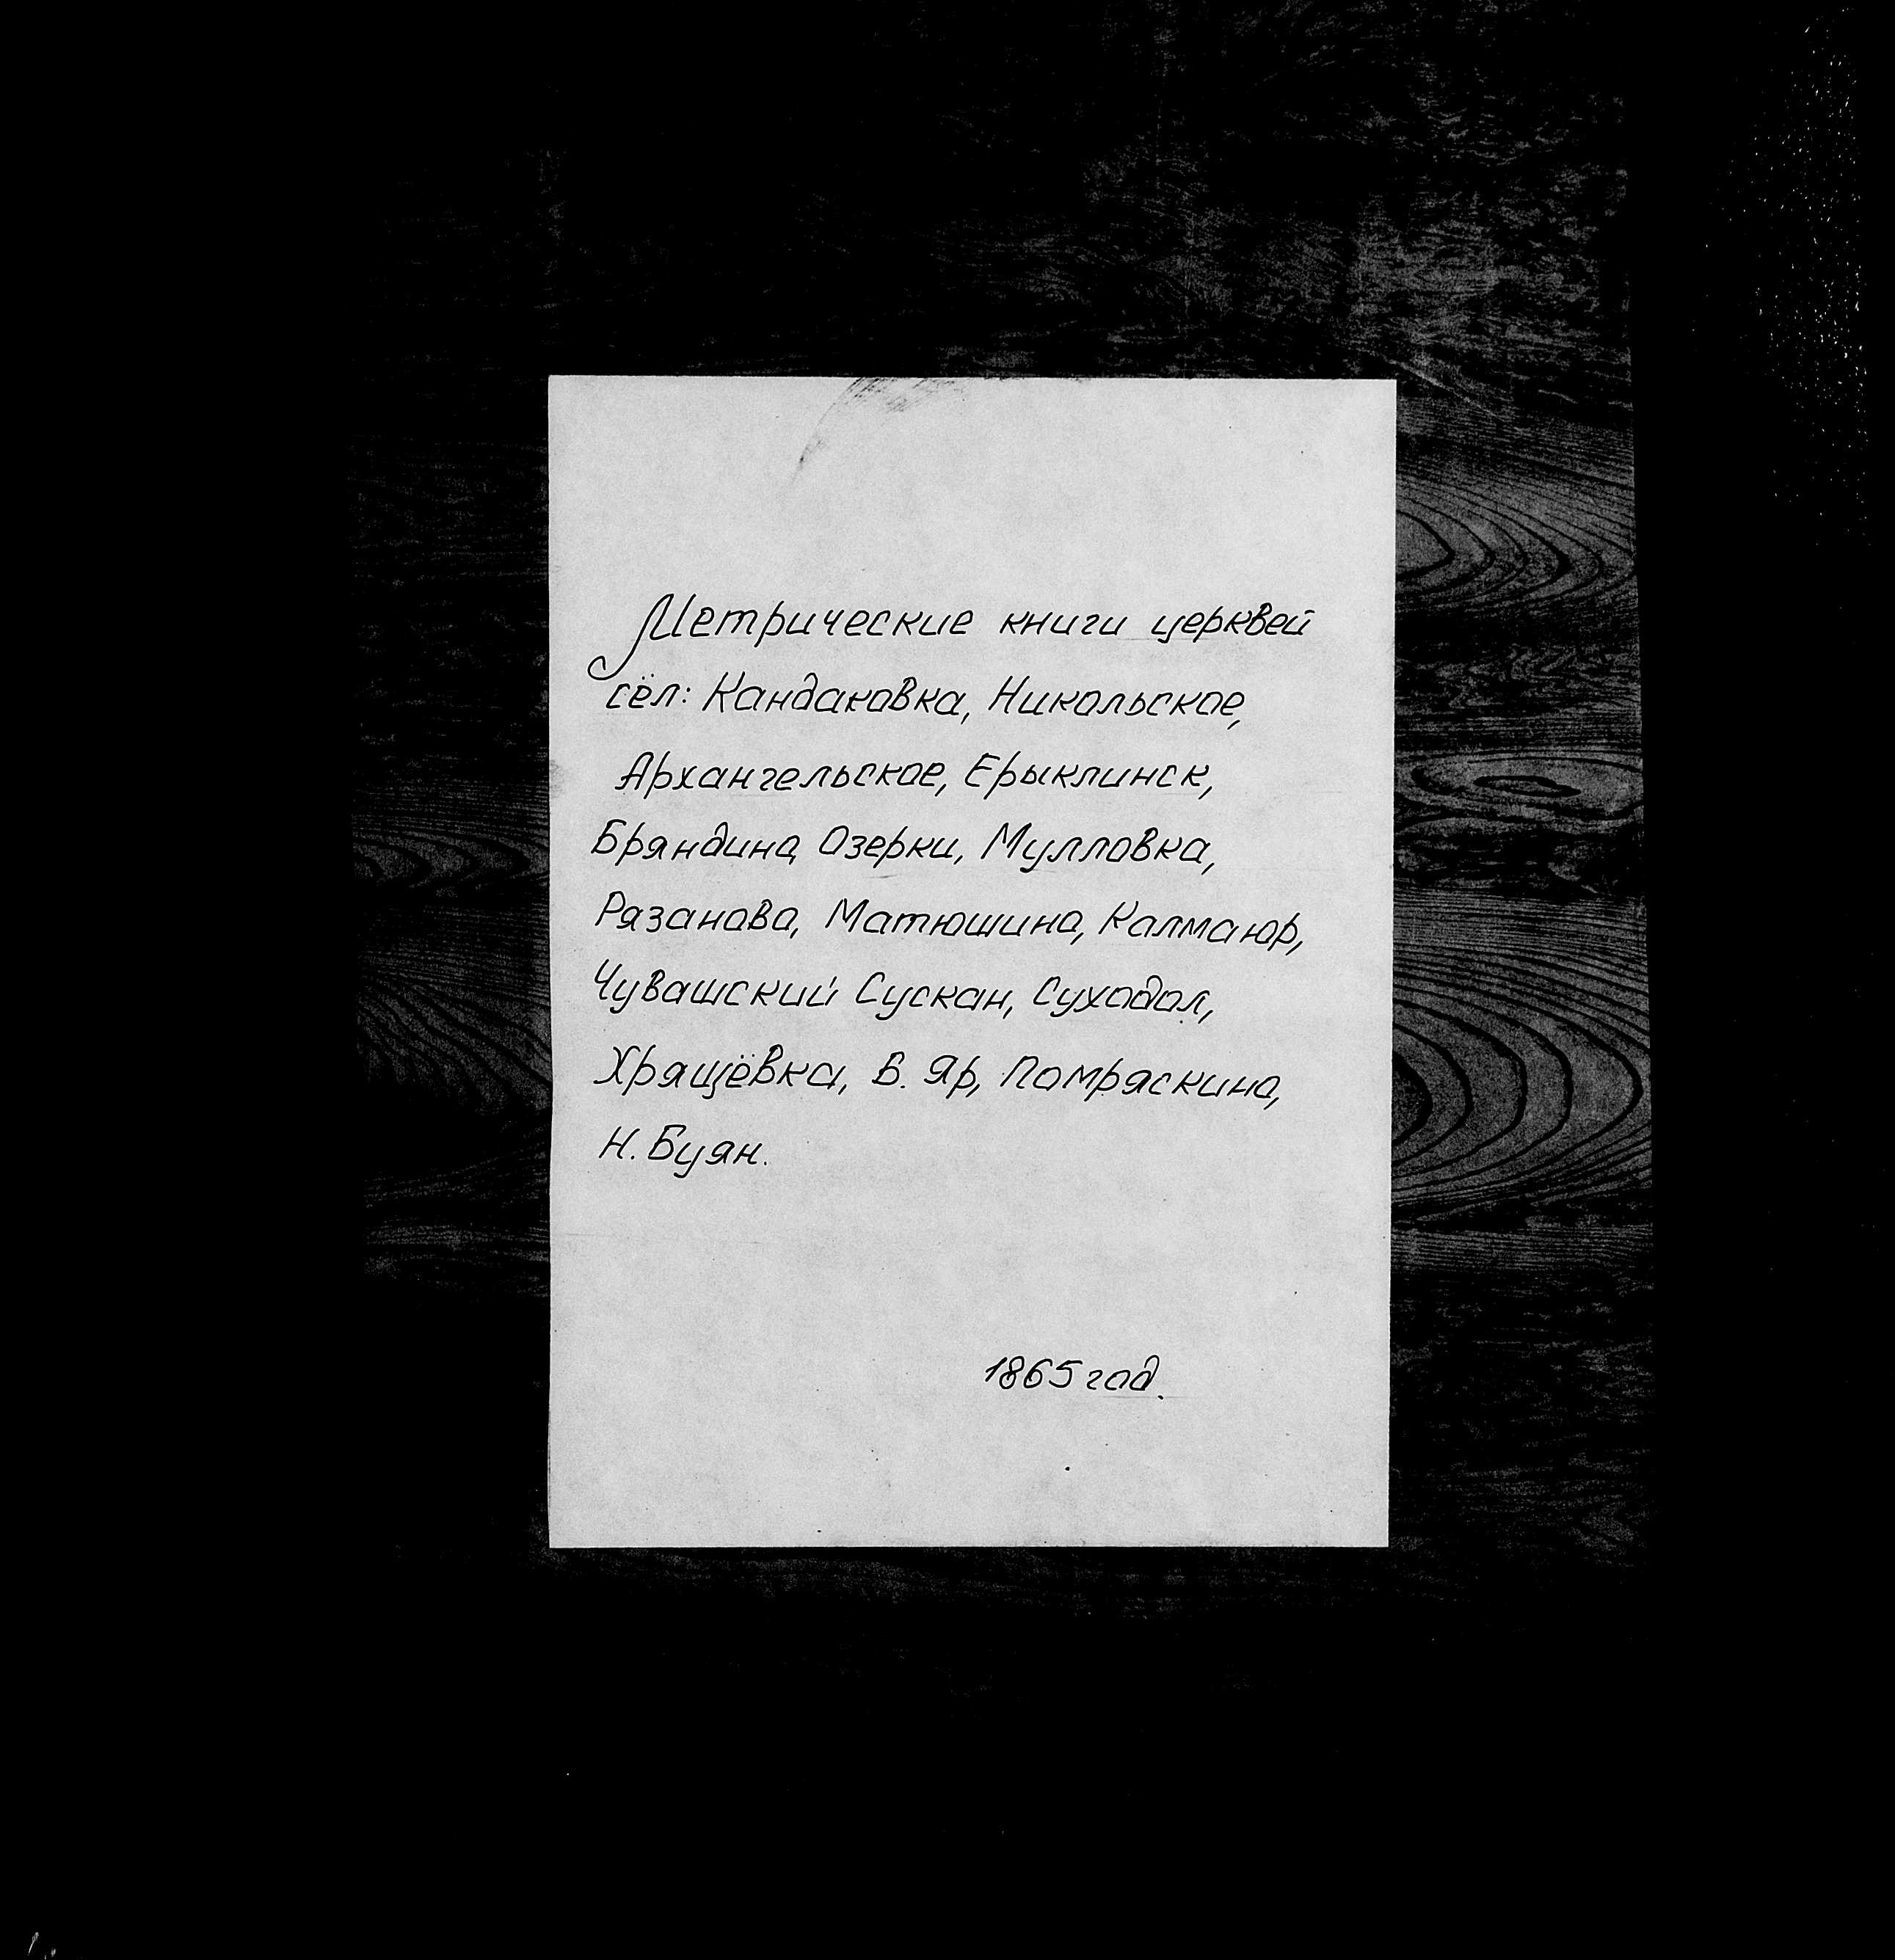 Метрические книги церквей
сёл: Кандаковка, Никольское,
Архангельское, Ерыклинск,
Бряндино, Озерки, Мулловка,
Рязаново, Матюшино, Калмаюр,
Чувашский Сускан, Суходол,
Хрящёвка, Б. Яр, Помряскино,
Н. Буян.
1865 год.